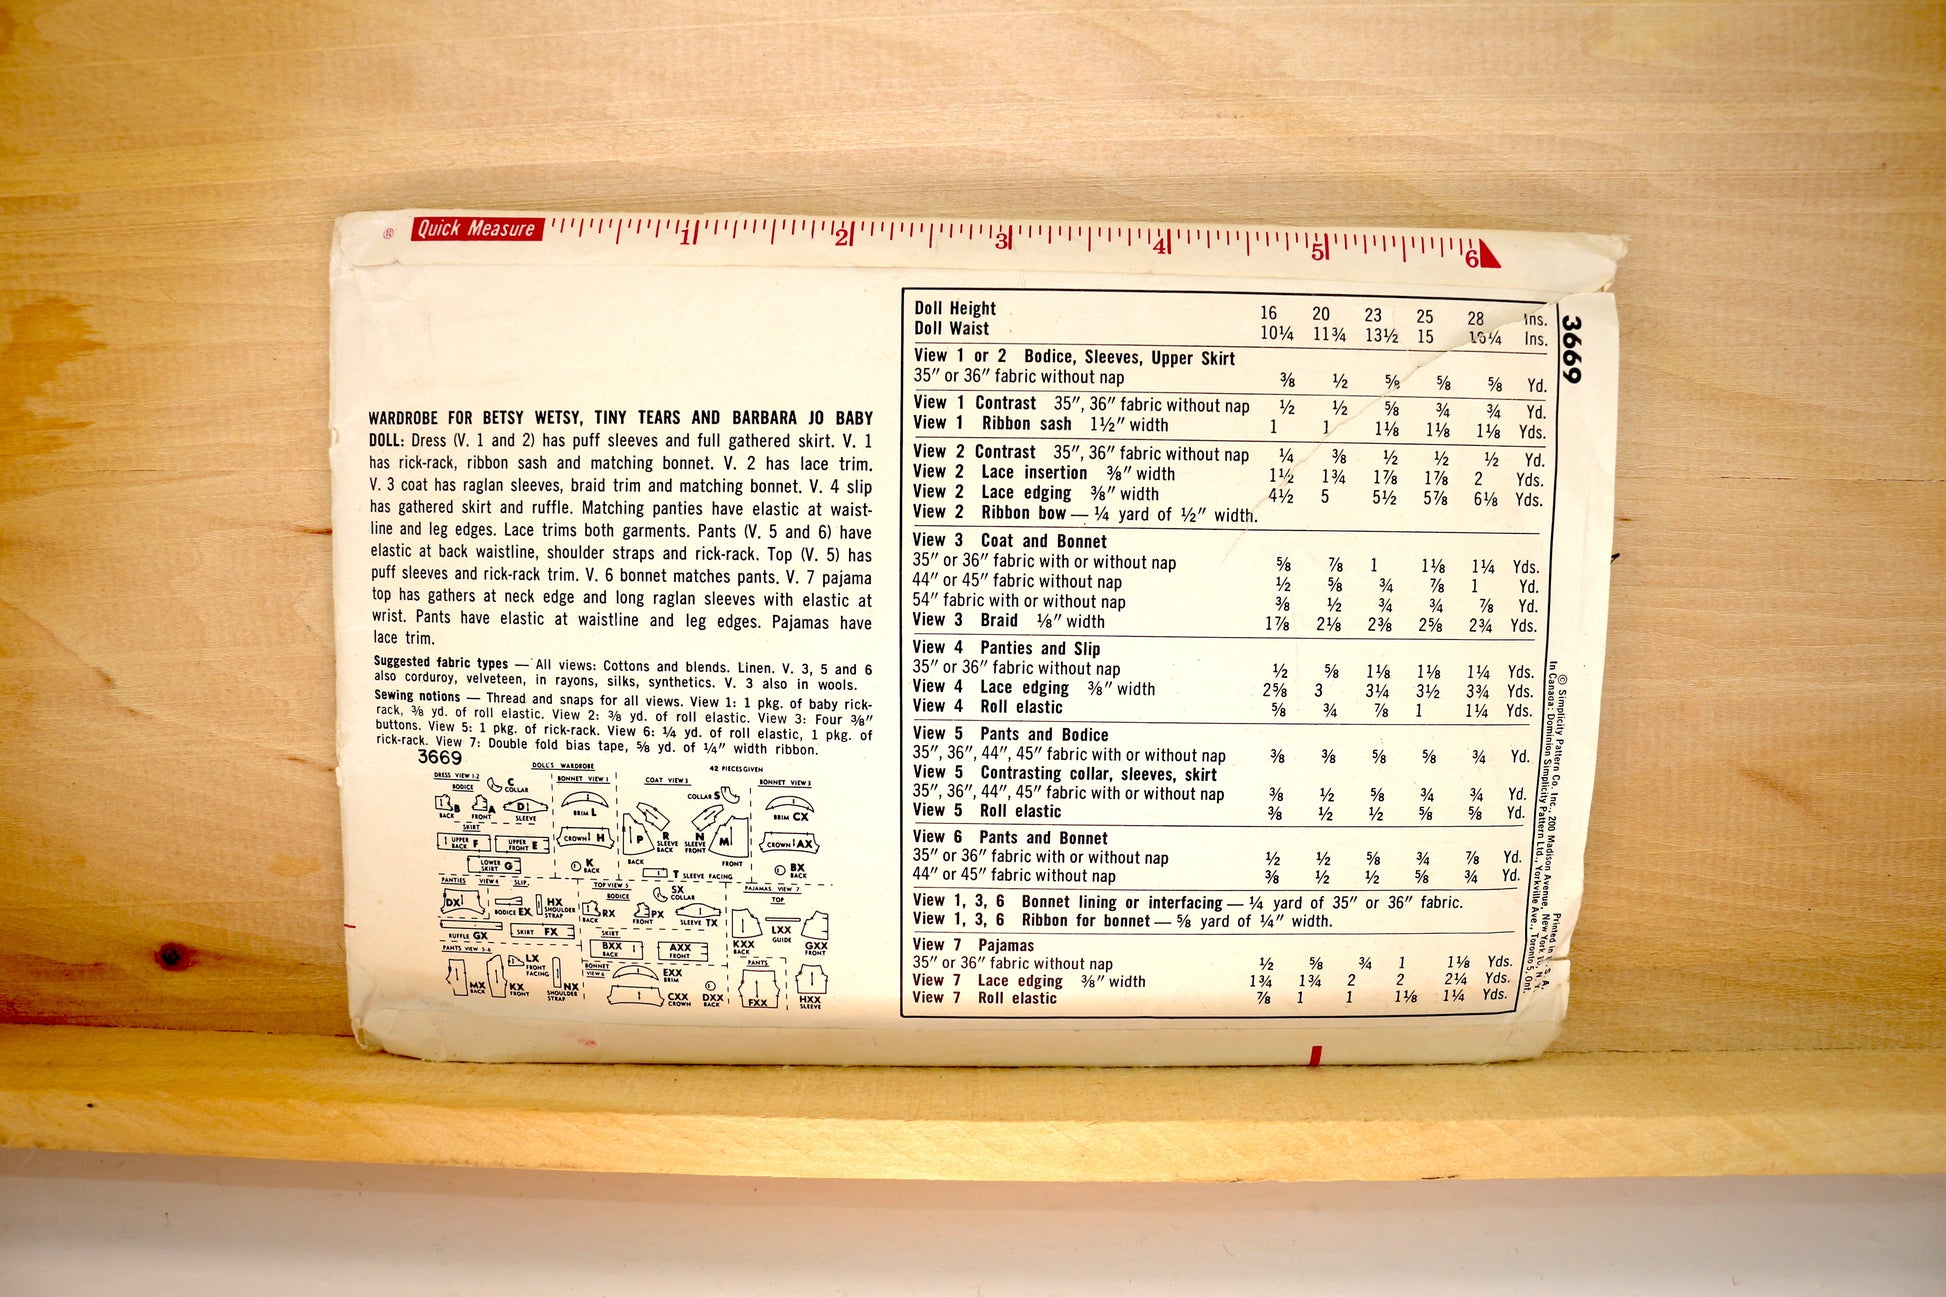 ® Quick Measure 1 2 3 4 5 6
WARDROBE FOR BETSY WETSY, TINY TEARS AND BARBARA JO BABY
DOLL: Dress (V. 1 and 2) has puff sleeves and full gathered skirt. V. 1
has rick-rack, ribbon sash and matching bonnet. V. 2 has lace trim.
V. 3 coat has raglan sleeves, braid trim and matching bonnet. V. 4 slip
has gathered skirt and ruffle. Matching panties have elastic at waist-
line and leg edges. Lace trims both garments. Pants (V. 5 and 6) have
elastic at back waistline, shoulder straps and rick-rack. Top (V. 5) has
puff sleeves and rick-rack trim. V. 6 bonnet matches pants. V. 7 pajama
top has gathers at neck edge and long raglan sleeves with elastic at
wrist. Pants have elastic at waistline and leg edges. Pajamas have
lace trim.
Suggested fabric types — All views: Cottons and blends. Linen. V. 3, 5 and 6
also corduroy, velveteen, in rayons, silks, synthetics. V. 3 also in wools.
Sewing notions — Thread and snaps for all views. View 1: 1 pkg. of baby rick-
rack, ⅜ yd. of roll elastic. View 2: ⅜ yd. of roll elastic. View 3: Four ⅜"
buttons. View 5: 1 pkg. of rick-rack. View 6: ¼ yd. of roll elastic, 1 pkg. of
rick-rack. View 7: Double fold bias tape, ⅝ yd. of ¼" width ribbon.
3669
DOLL'S WARDROBE
42 PIECES GIVEN
DRESS VIEW 1-2
BODICE
C COLLAR
B BACK
A FRONT
D SLEEVE
SKIRT
UPPER BACK F
UPPER FRONT E
LOWER SKIRT G
BONNET VIEW 1
BRIM L
CROWN H
K BACK
COAT VIEW 3
COLLAR S
P BACK
R SLEEVE BACK
N SLEEVE FRONT
M FRONT
T SLEEVE FACING
BONNET VIEW 3
BRIM CX
CROWN AX
BX BACK
PANTIES VIEW 4 SLIP
DX
BODICE EX
HX SHOULDER STRAP
RUFFLE GX
SKIRT FX
TOP VIEW 5
BODICE
SX COLLAR
RX BACK
PX FRONT
SLEEVE TX
SKIRT
BXX BACK
AXX FRONT
PAJAMAS VIEW 7
TOP
KXX BACK
LXX GUIDE
GXX FRONT
PANTS
FXX
HXX SLEEVE
PANTS VIEW 5-6
MX BACK
KX FRONT
LX FRONT FACING
NX SHOULDER STRAP
BONNET VIEW 6
EXX BRIM
CXX CROWN
DXX BACK
Doll Height 16 20 23 25 28 Ins.
Doll Waist 10¼ 11¾ 13½ 15 16¼ Ins.
View 1 or 2 Bodice, Sleeves, Upper Skirt
35" or 36" fabric without nap ⅜ ½ ⅝ ⅝ ⅝ Yd.
View 1 Contrast 35", 36" fabric without nap ½ ½ ⅝ ¾ ¾ Yd.
View 1 Ribbon sash 1½" width 1 1 1⅛ 1⅛ 1⅛ Yds.
View 2 Contrast 35", 36" fabric without nap ¼ ⅜ ½ ½ ½ Yd.
View 2 Lace insertion ⅜" width 1½ 1¾ 1⅞ 1⅞ 2 Yds.
View 2 Lace edging ⅜" width 4½ 5 5½ 5⅞ 6⅛ Yds.
View 2 Ribbon bow — ¼ yard of ½" width.
View 3 Coat and Bonnet
35" or 36" fabric with or without nap ⅝ ⅞ 1 1⅛ 1¼ Yds.
44" or 45" fabric without nap ½ ⅝ ¾ ⅞ 1 Yd.
54" fabric with or without nap ⅜ ½ ¾ ¾ ⅞ Yd.
View 3 Braid ⅛" width 1⅞ 2⅛ 2⅜ 2⅝ 2¾ Yds.
View 4 Panties and Slip
35" or 36" fabric without nap ½ ⅝ 1⅛ 1⅛ 1¼ Yds.
View 4 Lace edging ⅜" width 2⅝ 3 3¼ 3½ 3¾ Yds.
View 4 Roll elastic ⅝ ¾ ⅞ 1 1¼ Yds.
View 5 Pants and Bodice
35", 36", 44", 45" fabric with or without nap ⅜ ⅜ ⅝ ⅝ ¾ Yd.
View 5 Contrasting collar, sleeves, skirt
35", 36", 44", 45" fabric with or without nap ⅜ ½ ⅝ ¾ ¾ Yd.
View 5 Roll elastic ⅜ ½ ½ ⅝ ⅝ Yd.
View 6 Pants and Bonnet
35" or 36" fabric with or without nap ½ ½ ⅝ ¾ ⅞ Yd.
44" or 45" fabric without nap ⅜ ½ ½ ⅝ ¾ Yd.
View 1, 3, 6 Bonnet lining or interfacing — ¼ yard of 35" or 36" fabric.
View 1, 3, 6 Ribbon for bonnet — ⅝ yard of ¼" width.
View 7 Pajamas
35" or 36" fabric without nap ½ ⅝ ¾ 1 1⅛ Yds.
View 7 Lace edging ⅜" width 1¾ 1¾ 2 2 2¼ Yds.
View 7 Roll elastic ⅞ 1 1 1⅛ 1¼ Yds.
3669
© Simplicity Pattern Co. Inc., 200 Madison Avenue, New York
In Canada: Dominion Simplicity Pattern Ltd., Yorkville Ave., Toronto 5, Ont.
Printed in